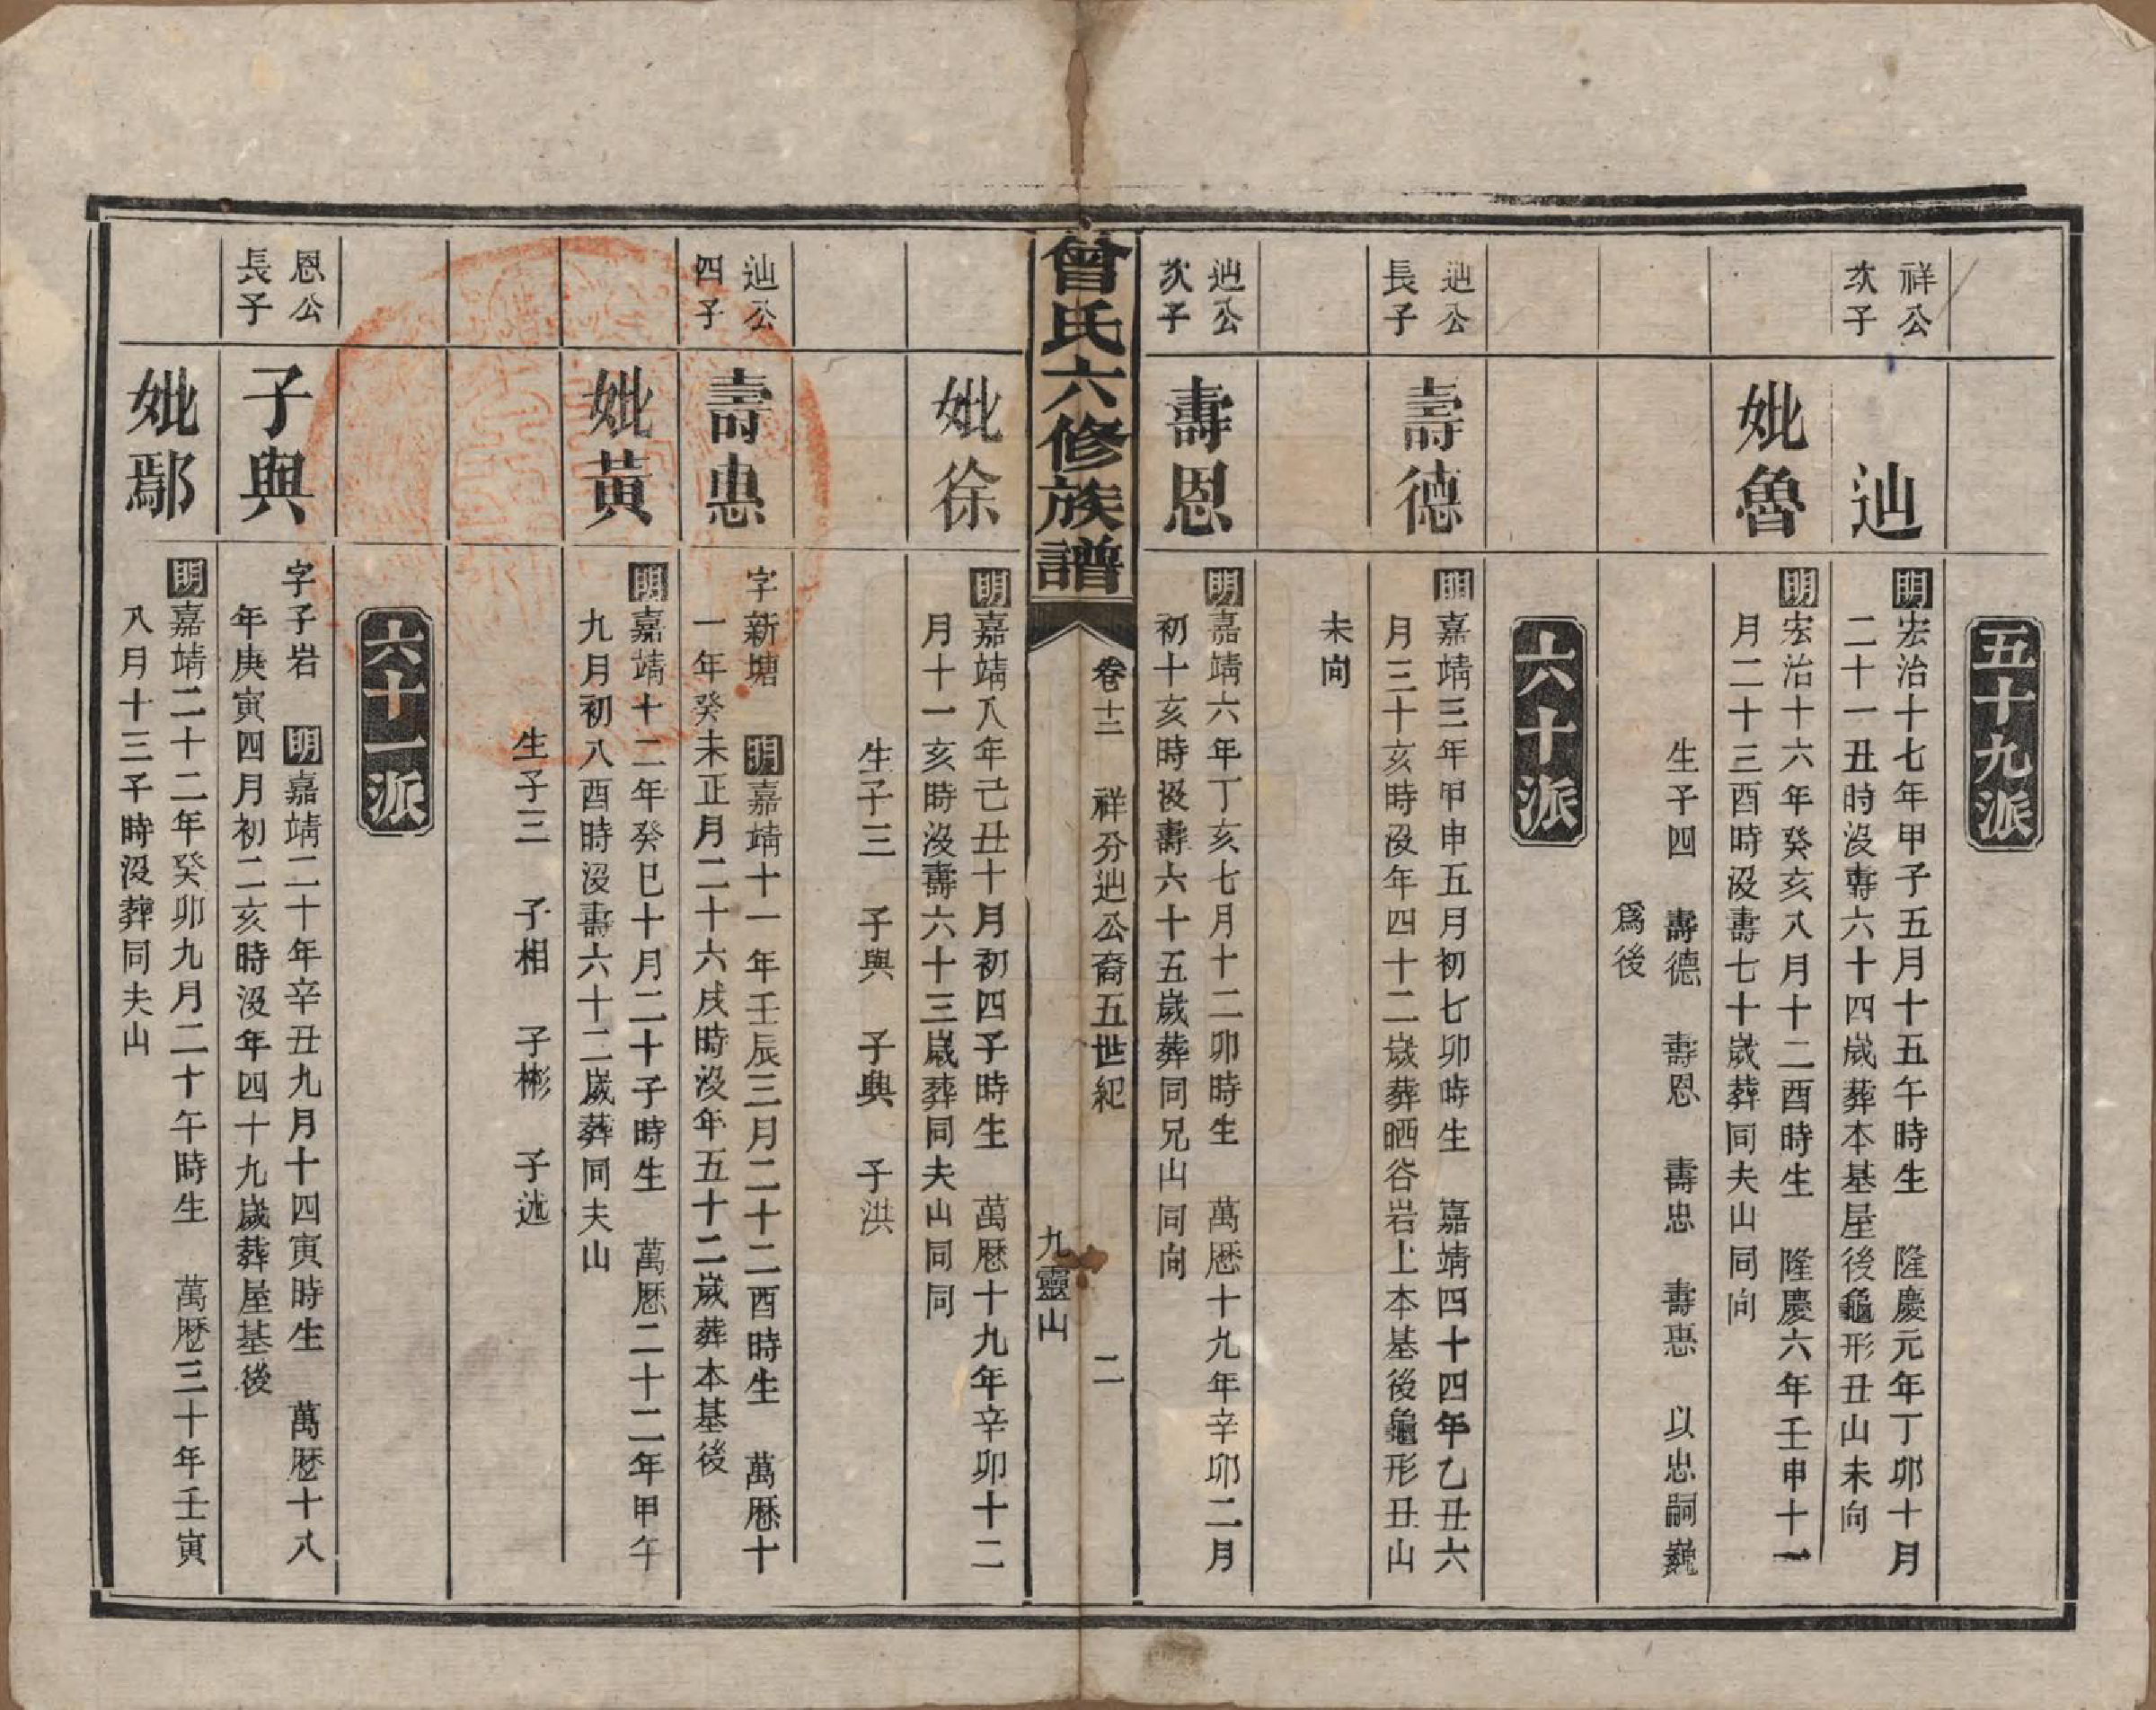 五十九派
祥公
次子
辿
明宏治十七年甲子五月十五午時生 隆慶元年丁卯十月
二十一丑時沒壽六十四歲葬本基屋後龜形丑山未向
妣魯
明宏治十六年癸亥八月十二酉時生 隆慶六年壬申十一
月二十三酉時沒壽七十歲葬同夫山同向
生子四 壽德 壽恩 壽忠 壽惠 以忠嗣巍
爲後
六十派
辿公
長子
壽德
明嘉靖三年甲申五月初七卯時生 嘉靖四十四年乙丑六
月三十亥時沒年四十二歲葬晒谷岩上本基後龜形丑山
未向
辿公
次子
壽恩
明嘉靖六年丁亥七月十二卯時生 萬厯十九年辛卯二月
初十亥時沒壽六十五歲葬同兄山同向
曾氏六修族譜
卷十三 祥分辿公裔五世紀 二
九靈山
妣徐
明嘉靖八年己丑十月初四子時生 萬厯十九年辛卯十二
月十一亥時沒壽六十三歲葬同夫山同同
生子三 子與 子典 子洪
辿公
四子
壽惠
字新塘 明嘉靖十一年壬辰三月二十二酉時生 萬厯十
一年癸未正月二十六戌時沒年五十二歲葬本基後
妣黃
明嘉靖十二年癸巳十月二十子時生 萬厯二十二年甲午
九月初八酉時沒壽六十二歲葬同夫山
生子三 子相 子彬 子述
六十一派
恩公
長子
子與
字子岩 明嘉靖二十年辛丑九月十四寅時生 萬厯十八
年庚寅四月初二亥時沒年四十九歲葬屋基後
妣鄢
明嘉靖二十二年癸卯九月二十午時生 萬厯三十年壬寅
八月十三子時沒葬同夫山